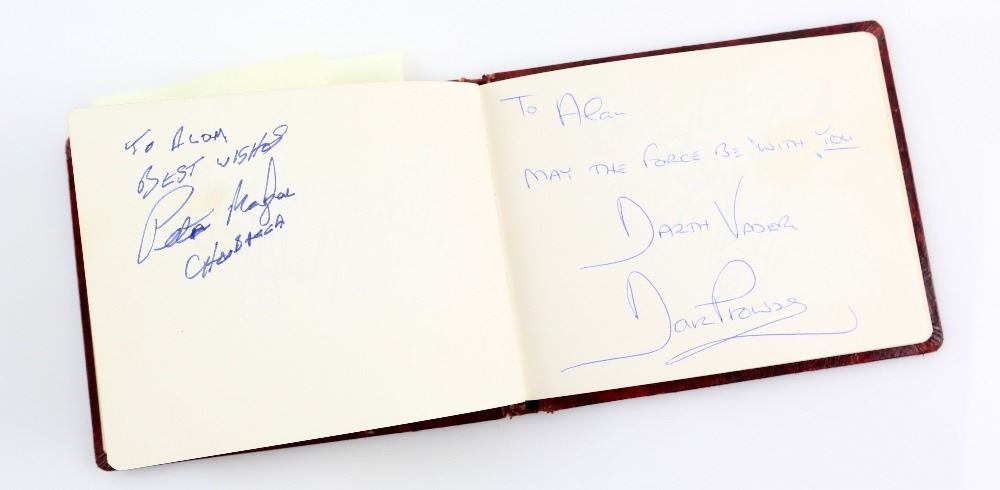 TO ALAN
BEST WISHES
Peter Mayhew
CHEWBACCA
To Alan
MAY THE FORCE BE WITH YOU
DARTH VADER
Dave Prowse